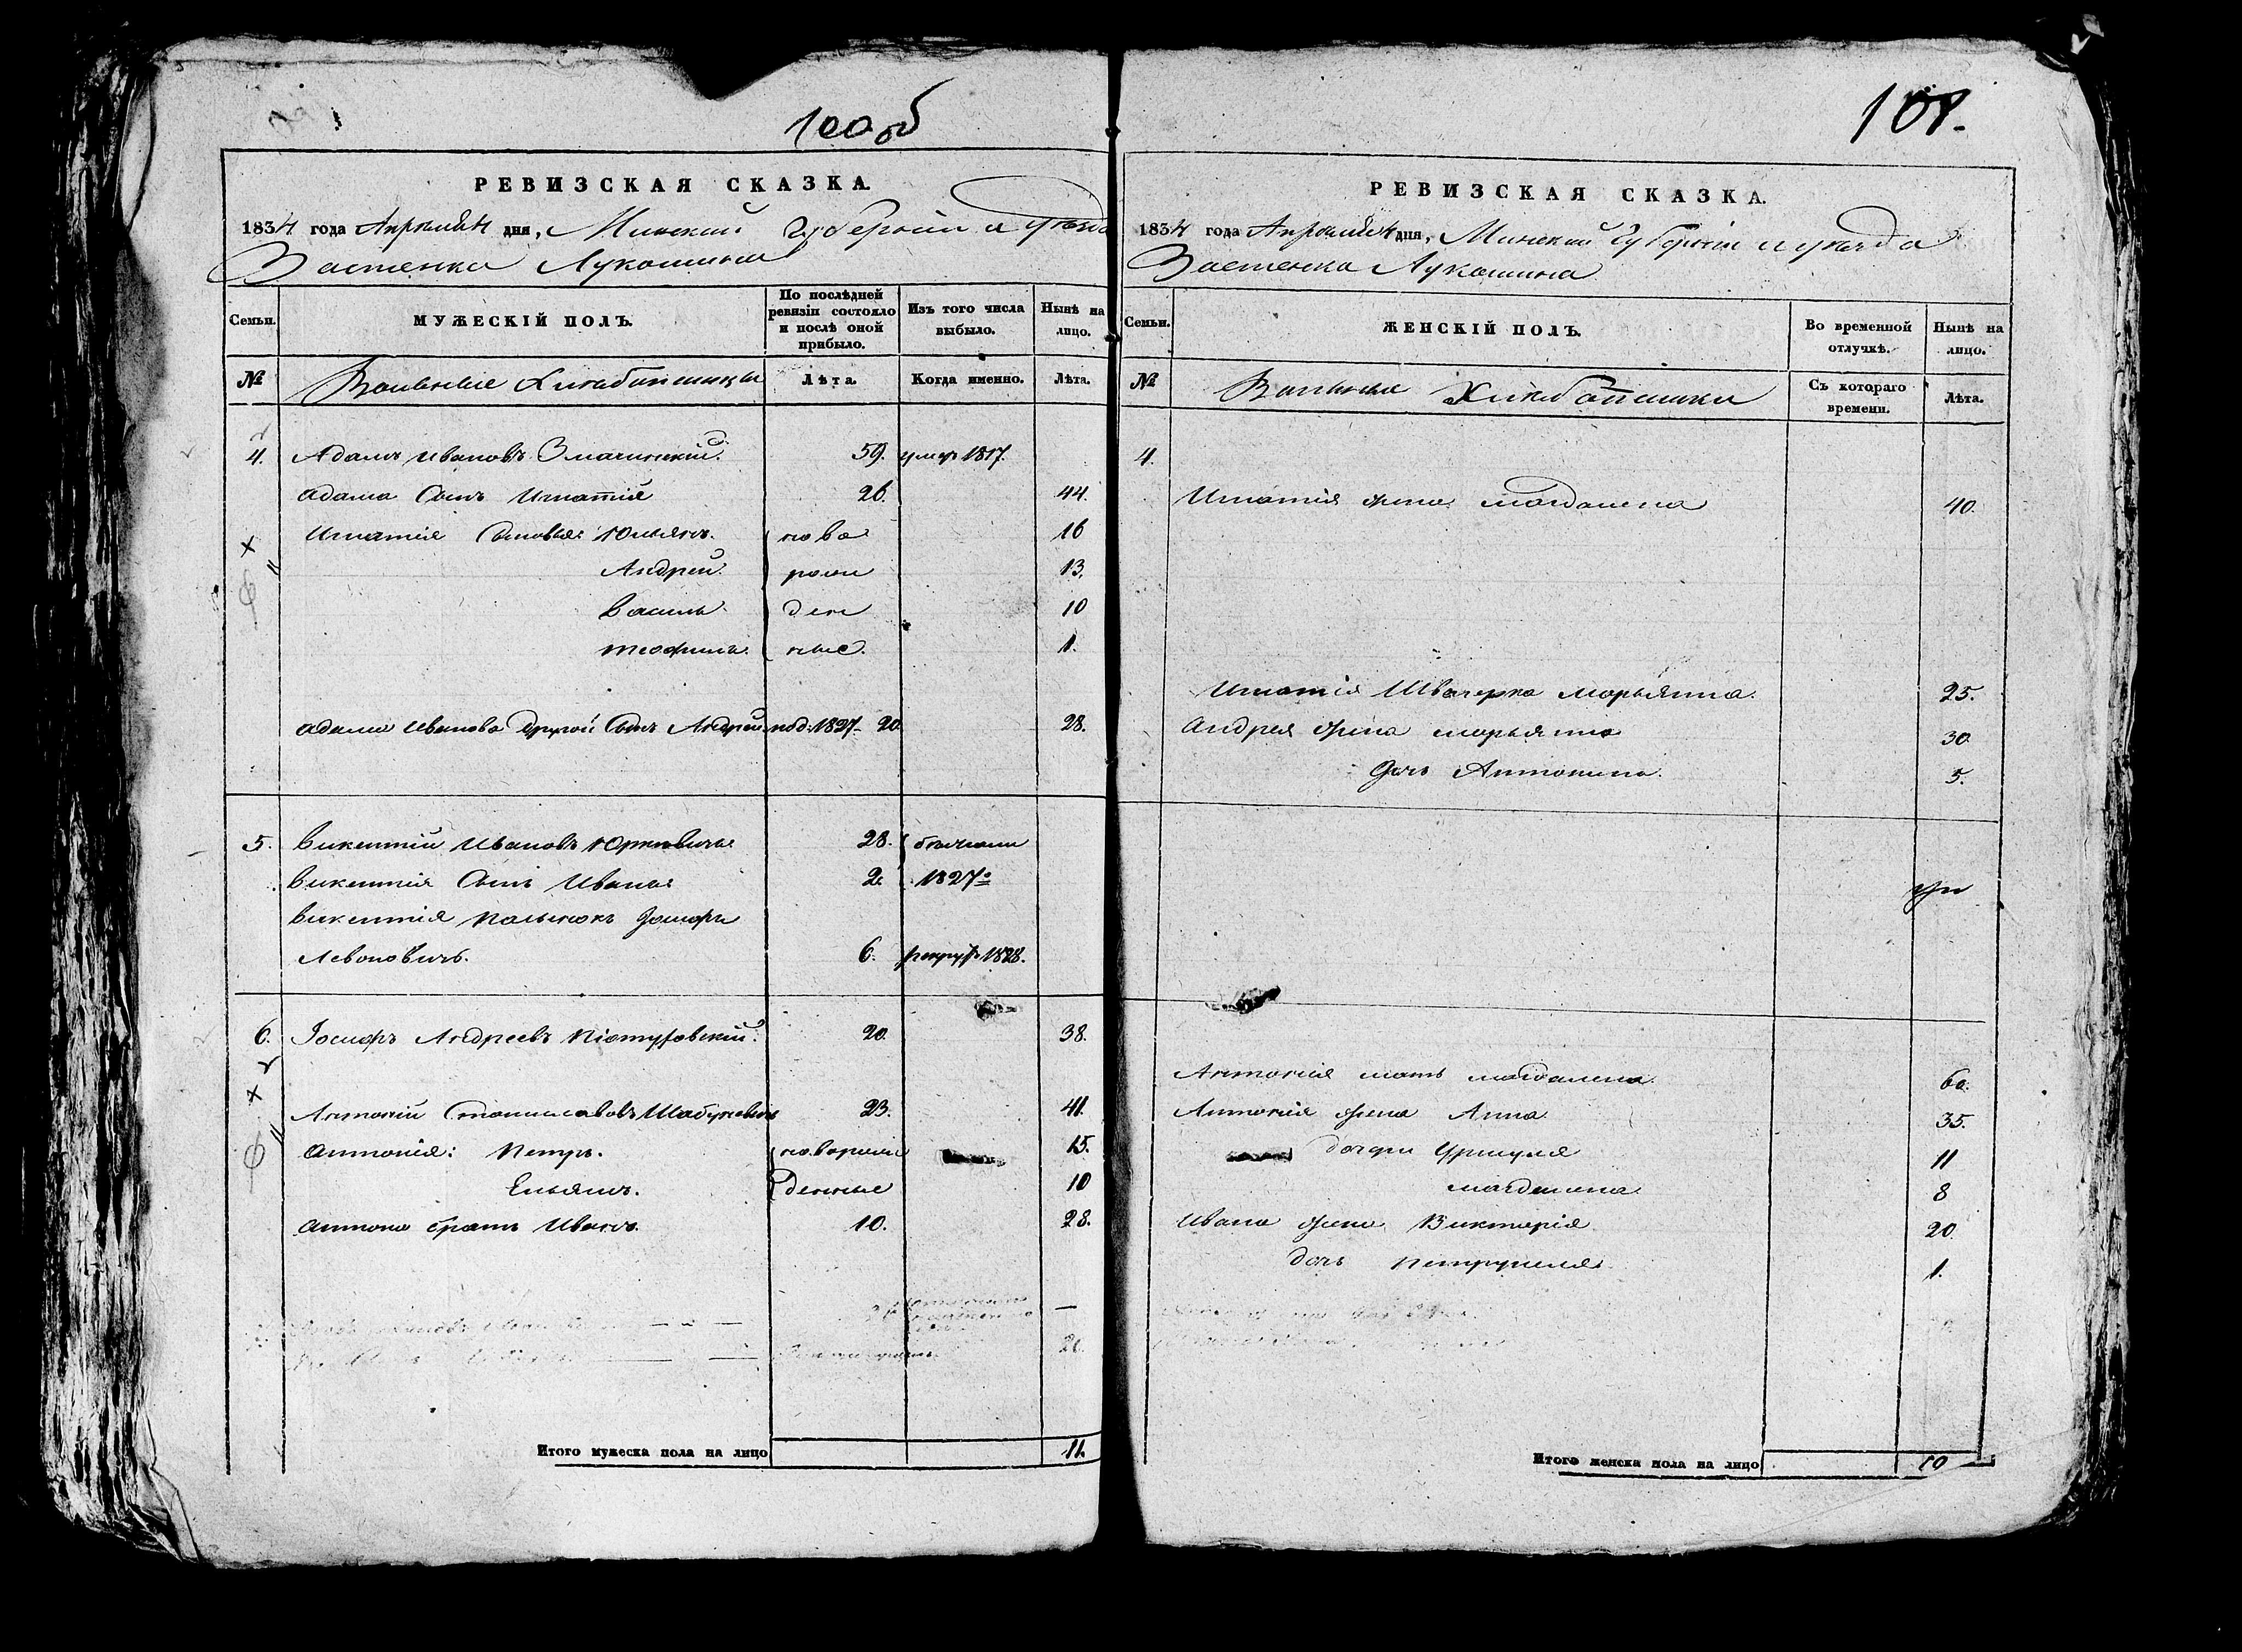 100 об
РЕВИЗСКАЯ СКАЗКА.
1834 года Апреля 4 дня, Минской Губерніи и Уезда
Застенка Лукашина
Семьи.
МУЖЕСКІЙ ПОЛЪ.
По послѣдней ревизіи состояло и послѣ оной прибыло.
Изъ того числа выбыло.
Нынѣ на лицо.
№
Вольные Хлебопашцы
Лѣта.
Когда именно.
Лѣта.
4. Адамъ Ивановъ Змачинскій. 59. умер 1817.
Адама Сынъ Игнатій 26. 44.
Игнатія Сыновья: Юльянъ. ново 16
Андрей. рож 13.
Василь. ден 10
Теофиль. ные. 1.
Адама Иванова другой Сынъ Андрей 1827 20 28.
5. Викентій Ивановъ Юркевичъ 28. бежали
Викентія Сынъ Иванъ 2. 1827º
Викентія Іосифъ
Левоновичъ. 6. рекрут 1828.
6. Іосифъ Андреевъ Піотуховскій. 20. 38.
Антоній Станиславовъ 23. 41.
Антонія: Петръ. новорож 15.
Ельяшъ. денные 10
Антона братъ Иванъ. 10. 28.
Итого мужеска пола на лицо 11.
101.
РЕВИЗСКАЯ СКАЗКА.
1834 года Апреля 4 дня, Минской Губерніи и уезда
Застенка Лукашина
Семьи.
ЖЕНСКІЙ ПОЛЪ.
Во временной отлучкѣ.
Нынѣ на лицо.
№
Вольные Хлебопашцы
Съ котораго времени.
Лѣта.
4.
Игнатія жена Магдалена 40.
Игнатія Швагерка Марьянна. 25.
Андрея жена Марьянна 30
Дочь Антонина. 5.
Антонія мать Магдалена. 60.
Антонія жена Анна 35.
дочери Уршуля 11
Магдалена 8
Ивана жена Викторія 20.
дочь Петрунеля 1.
Итого женска пола на лицо 10